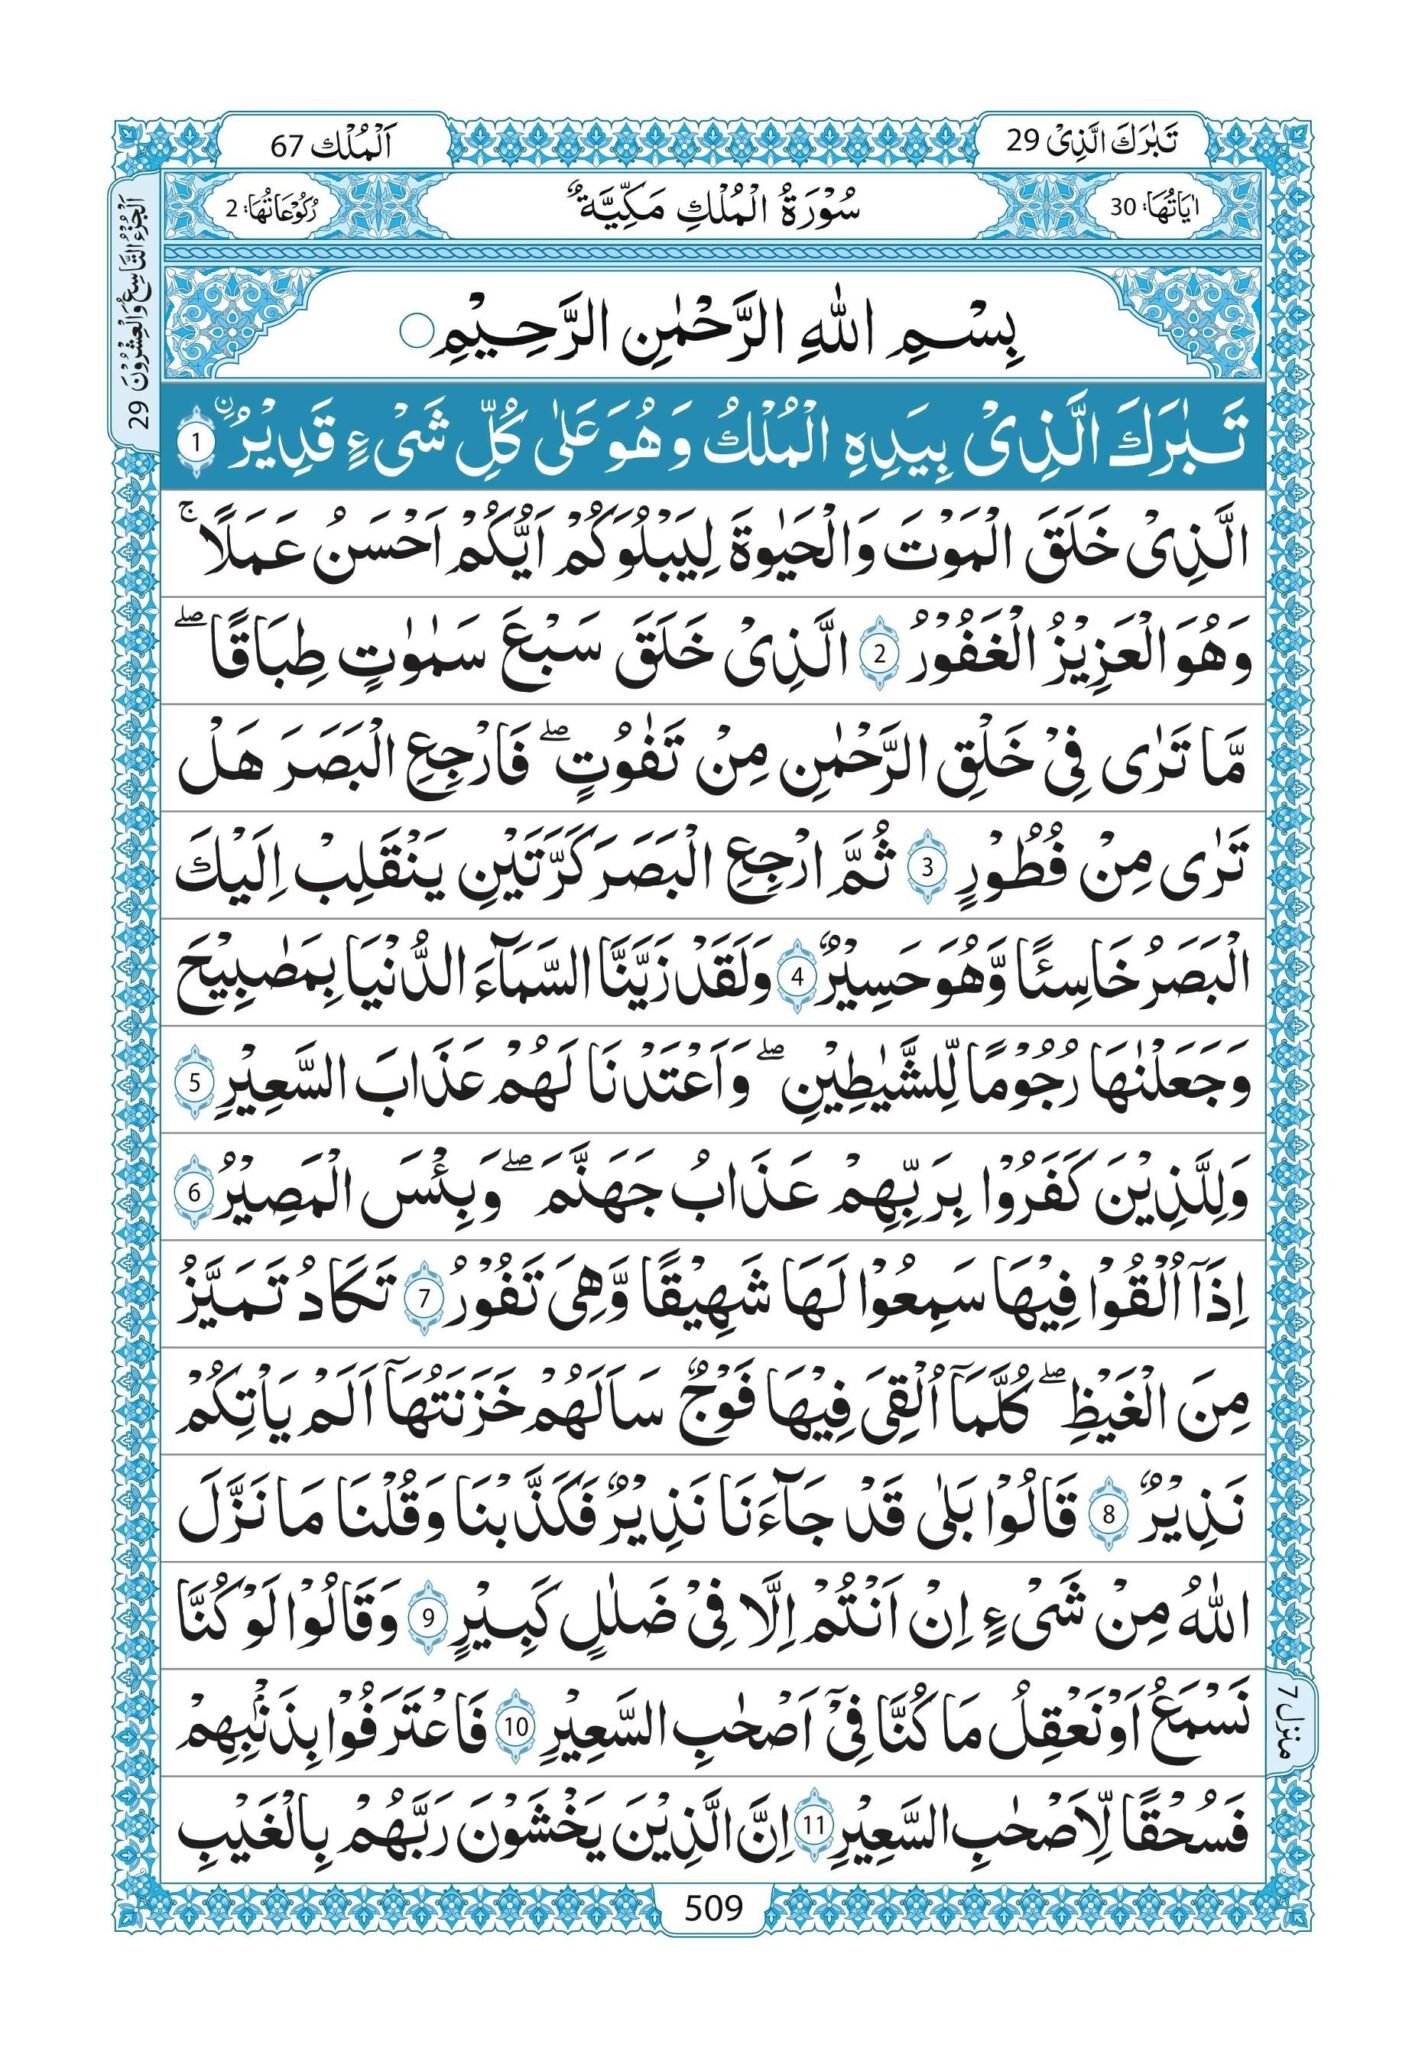 تَبٰرَكَ الَّذِىْ 29
اَلْمُلْك 67
اٰيَاتُهَا: 30
سُوْرَةُ الْمُلْكِ مَكِّيَّةٌ
رُكُوْعَاتُهَا: 2
اَلْجُزْءُ التَّاسِعُ وَالْعِشْرُوْنَ 29
بِسْمِ اللهِ الرَّحْمٰنِ الرَّحِيْمِ
تَبٰرَكَ الَّذِىْ بِيَدِهِ الْمُلْكُ وَهُوَ عَلٰى كُلِّ شَىْءٍ قَدِيْرُۨ ۙ 1
الَّذِىْ خَلَقَ الْمَوْتَ وَالْحَيٰوةَ لِيَبْلُوَكُمْ اَيُّكُمْ اَحْسَنُ عَمَلًا ؕ
وَهُوَ الْعَزِيْزُ الْغَفُوْرُ 2 الَّذِىْ خَلَقَ سَبْعَ سَمٰوٰتٍ طِبَاقًا ۖ
مَّا تَرٰى فِىْ خَلْقِ الرَّحْمٰنِ مِنْ تَفٰوُتٍ ۖ فَارْجِعِ الْبَصَرَ هَلْ
تَرٰى مِنْ فُطُوْرٍ 3 ثُمَّ ارْجِعِ الْبَصَرَ كَرَّتَيْنِ يَنْقَلِبْ اِلَيْكَ
الْبَصَرُ خَاسِئًا وَّهُوَ حَسِيْرٌ 4 وَلَقَدْ زَيَّنَّا السَّمَآءَ الدُّنْيَا بِمَصٰبِيْحَ
وَجَعَلْنٰهَا رُجُوْمًا لِّلشَّيٰطِيْنِ ۖ وَاَعْتَدْنَا لَهُمْ عَذَابَ السَّعِيْرِ 5
وَلِلَّذِيْنَ كَفَرُوْا بِرَبِّهِمْ عَذَابُ جَهَنَّمَ ۖ وَبِئْسَ الْمَصِيْرُ 6
اِذَآ اُلْقُوْا فِيْهَا سَمِعُوْا لَهَا شَهِيْقًا وَّهِىَ تَفُوْرُ 7 تَكَادُ تَمَيَّزُ
مِنَ الْغَيْظِ ۖ كُلَّمَآ اُلْقِىَ فِيْهَا فَوْجٌ سَاَلَهُمْ خَزَنَتُهَآ اَلَمْ يَاْتِكُمْ
نَذِيْرٌ 8 قَالُوْا بَلٰى قَدْ جَآءَنَا نَذِيْرٌ فَكَذَّبْنَا وَقُلْنَا مَا نَزَّلَ
اللهُ مِنْ شَىْءٍ اِنْ اَنْتُمْ اِلَّا فِىْ ضَلٰلٍ كَبِيْرٍ 9 وَقَالُوْا لَوْ كُنَّا
نَسْمَعُ اَوْ نَعْقِلُ مَا كُنَّا فِىْٓ اَصْحٰبِ السَّعِيْرِ 10 فَاعْتَرَفُوْا بِذَنْۢبِهِمْ
منزل 7
فَسُحْقًا لِّاَصْحٰبِ السَّعِيْرِ 11 اِنَّ الَّذِيْنَ يَخْشَوْنَ رَبَّهُمْ بِالْغَيْبِ
509